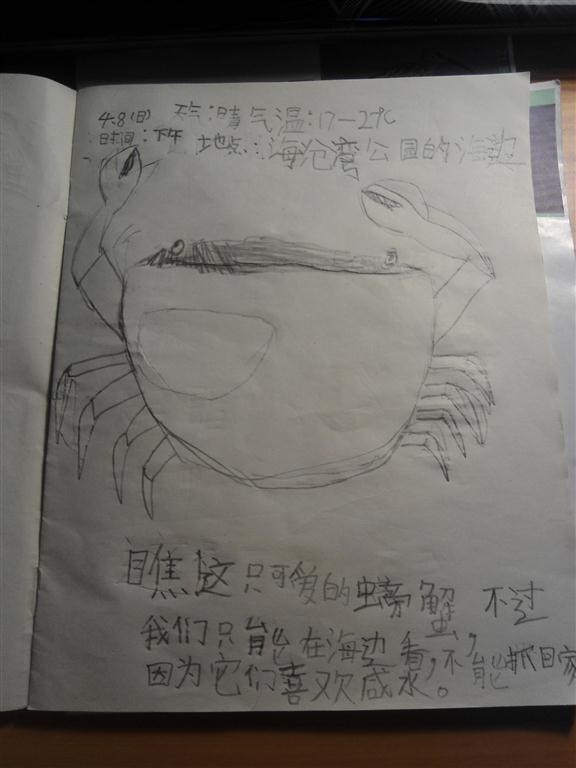 4.8(日) 天气:晴 气温:17—27℃
时间:下午 地点:海沧湾公园的海边
瞧这只可爱的螃蟹 不过
我们只能在海边看,不能抓回家
因为它们喜欢咸水。